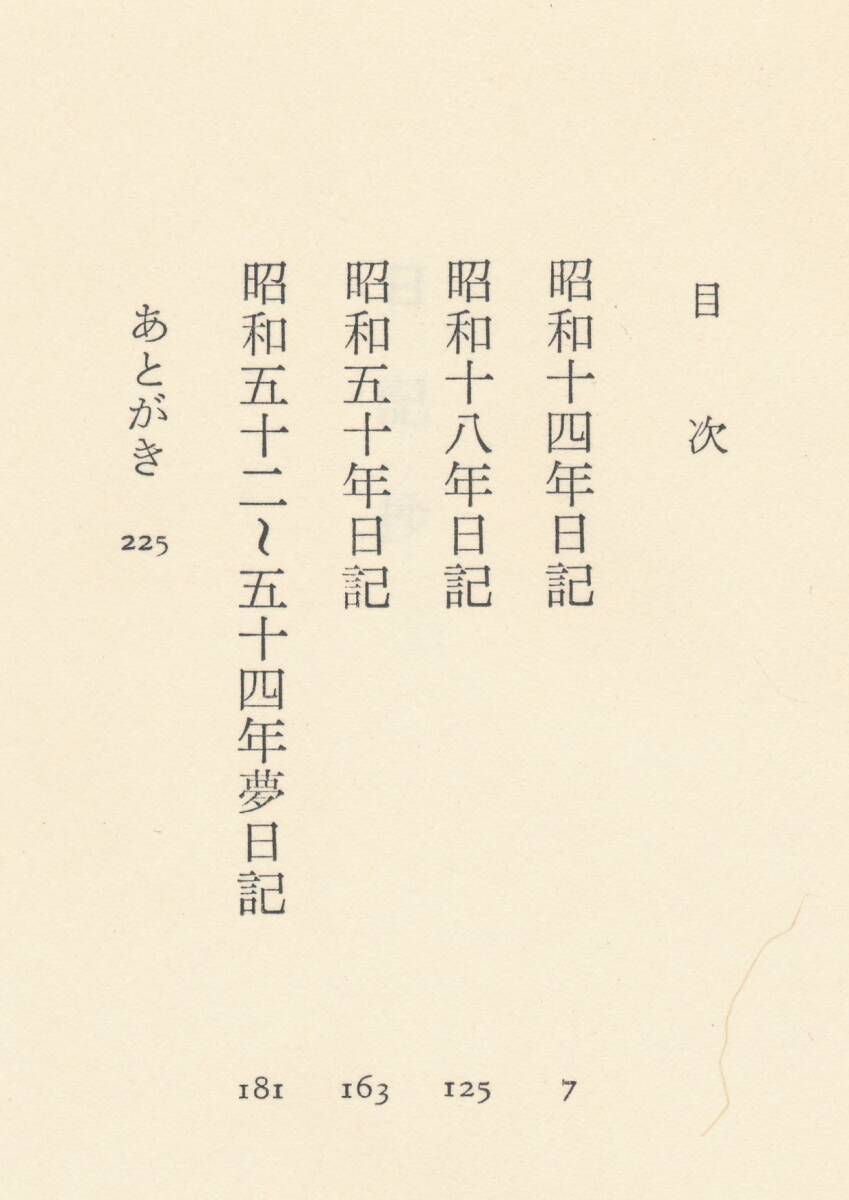 目次
昭和十四年日記 7
昭和十八年日記 125
昭和五十年日記 163
昭和五十二〜五十四年夢日記 181
あとがき 225